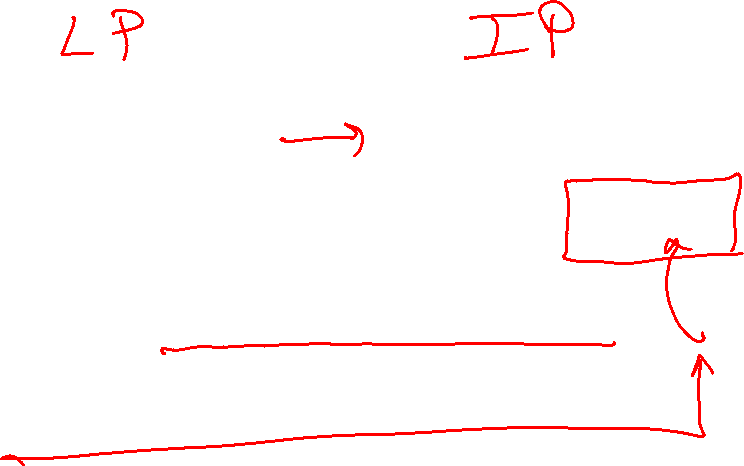 LP IP